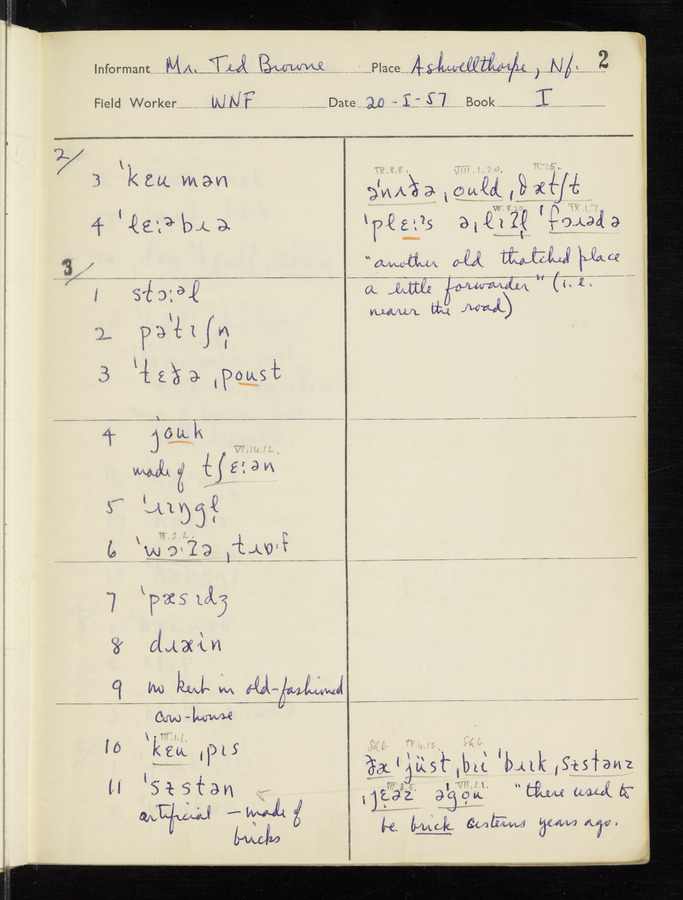 Informant Mr. Ted Browne Place Ashwellthorpe, Nf. 2
Field Worker WNF Date 20-I-57 Book I
2/
3 ˈkɛu mən
4 ˈlɛiːəbɪə
3/
1 stɔːəl
2 pəˈtɪʃn̩
3 ˈtɛðə ˌpoust
4 jouk
VI.14.12.
made of tʃɛːən
5 ˈɹɪŋgl̩
6 ˈwɔːʔə ˌtɹɒːf
7 ˈpæsɪdʒ
8 dɹæin
9 no kerb in old-fashioned
cow-house
III.1.1.
10 ˈkɛu ˌpɪs
11 ˈsɪstən
artificial – made of
bricks
IX.8.8. VIII.1.20. II.7.5.
əˈnɪðə ˌould ˌθætʃt
ˈplɛːˀs ə ˌlɪʔl̩ ˈfɔɹədə
"another old thatched place
a little forwarder" (i.e.
nearer the road)
ðæ ˈjüst ˌbɪi ˈbɹɪk ˌsɪstənz
ˌjɛəz əˈgou "there used to
be brick cisterns years ago.